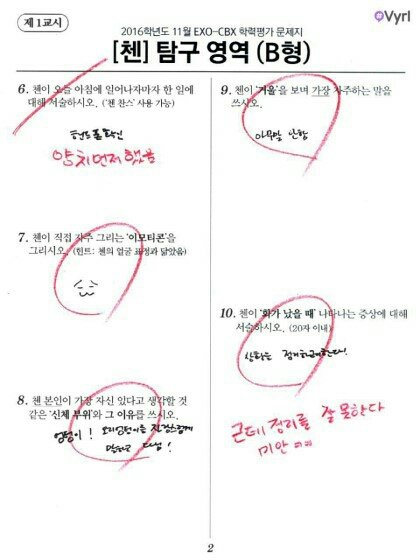 제 1 교시
Vyrl
2016학년도 11월 EXO-CBX 학력평가 문제지
[첸] 탐구 영역 (B형)
6. 첸이 오늘 아침에 일어나자마자 한 일에
대해 서술하시오. ('첸 찬스' 사용 가능)
핸드폰확인
양치먼저했음
7. 첸이 직접 자주 그리는 '이모티콘'을
그리시오. (힌트: 첸의 얼굴 표정과 닮았음)
8. 첸 본인이 가장 자신 있다고 생각할 것
같은 '신체 부위'와 그 이유를 쓰시오.
엉덩이! 오리엉덩이를 자랑스럽게
말하고 다님!
9. 첸이 '거울'을 보며 가장 자주하는 말을
쓰시오.
아무말 안함
10. 첸이 '화가 났을 때' 나타나는 증상에 대해
서술하시오. (20자 이내)
상황을 정리하려한다!
근데 정리를 잘 못한다
미안 ㅠㅠ
2